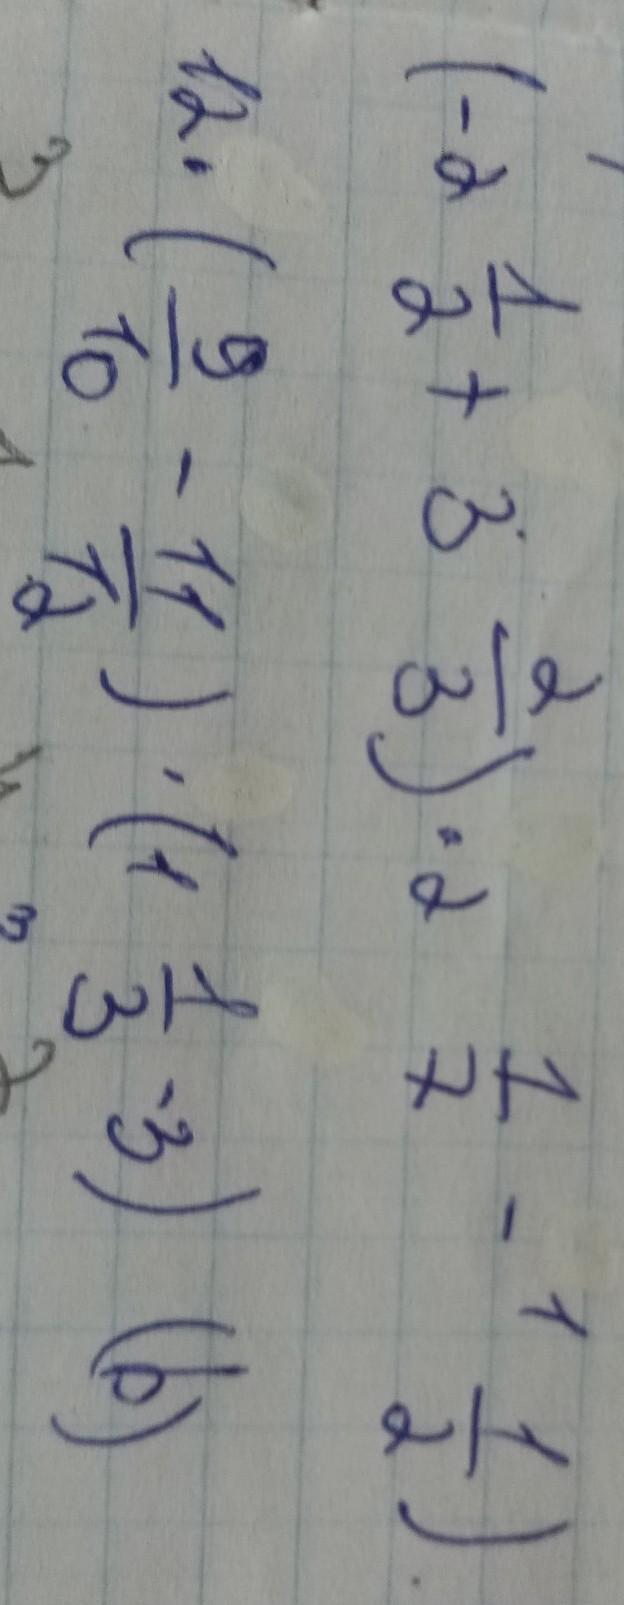 (-2 1/2 + 3 2/3) · 2 1/7 - 1 1/2)
12. (9/10 - 11/12) · (1 1/3 · 3) (b)